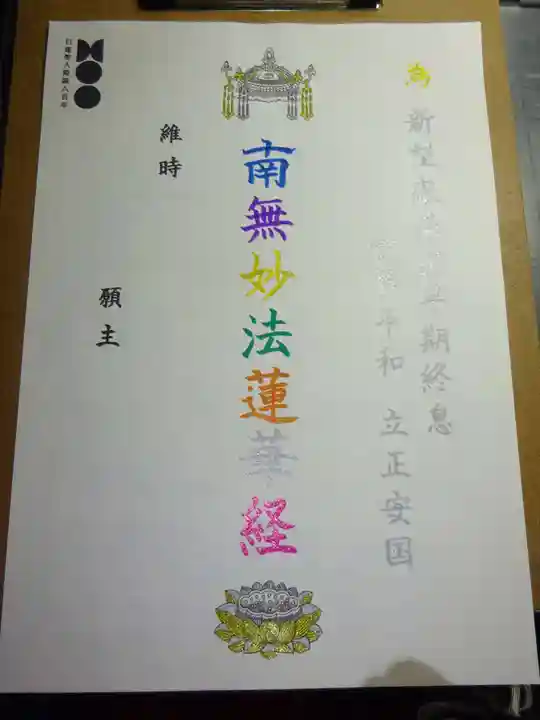 為
新型感染症早期終息
世界平和 立正安国
南無妙法蓮華経
維時
願主
日蓮聖人降誕八百年